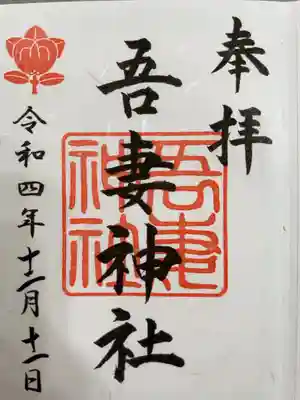 奉拝
吾妻神社
吾妻
神社
令和四年十一月十一日